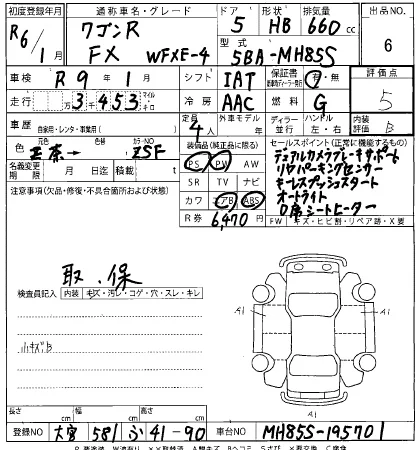 初度登録年月 通称車名・グレード ドア 形状 排気量 出品NO
R6/1月 ワゴンR 5 HB 660cc 6
FX WFXE-4 型式 5BA-MH85S
車検 R9年1月 シフト IAT 保証書 有・無 評価点
走行 3453 マイル 冷房 AAC 燃料 G 5
車歴 自家用・レンタ・事業用( ) 定員 4人 外車モデル ディーラー 並行 ハンドル 左・右 内装 B
色 元色 → 色替 カラーNO ZSF 装備品(純正品に限る) セールスポイント(正常に機能するもの)
名義変更期限 月 日 積載 t PS PW AW デュアルカメラブレーキサポート
注意事項(欠品・修復・不具合箇所および状態) SR TV ナビ リヤパーキングセンサー
カワ エアB ABS キーレスプッシュスタート
R券 6,470円 オートライト
D席シートヒーター
FW キズ・ヒビ割・リペア跡・X要
取.保
検査員記入 内装 キズ・汚レ・コゲ・穴・スレ・キレ
小キズB
A1 A1
A1
長さ cm 幅 cm 高さ cm
登録NO 大宮 581 ふ 41-90 車台NO MH85S-195701